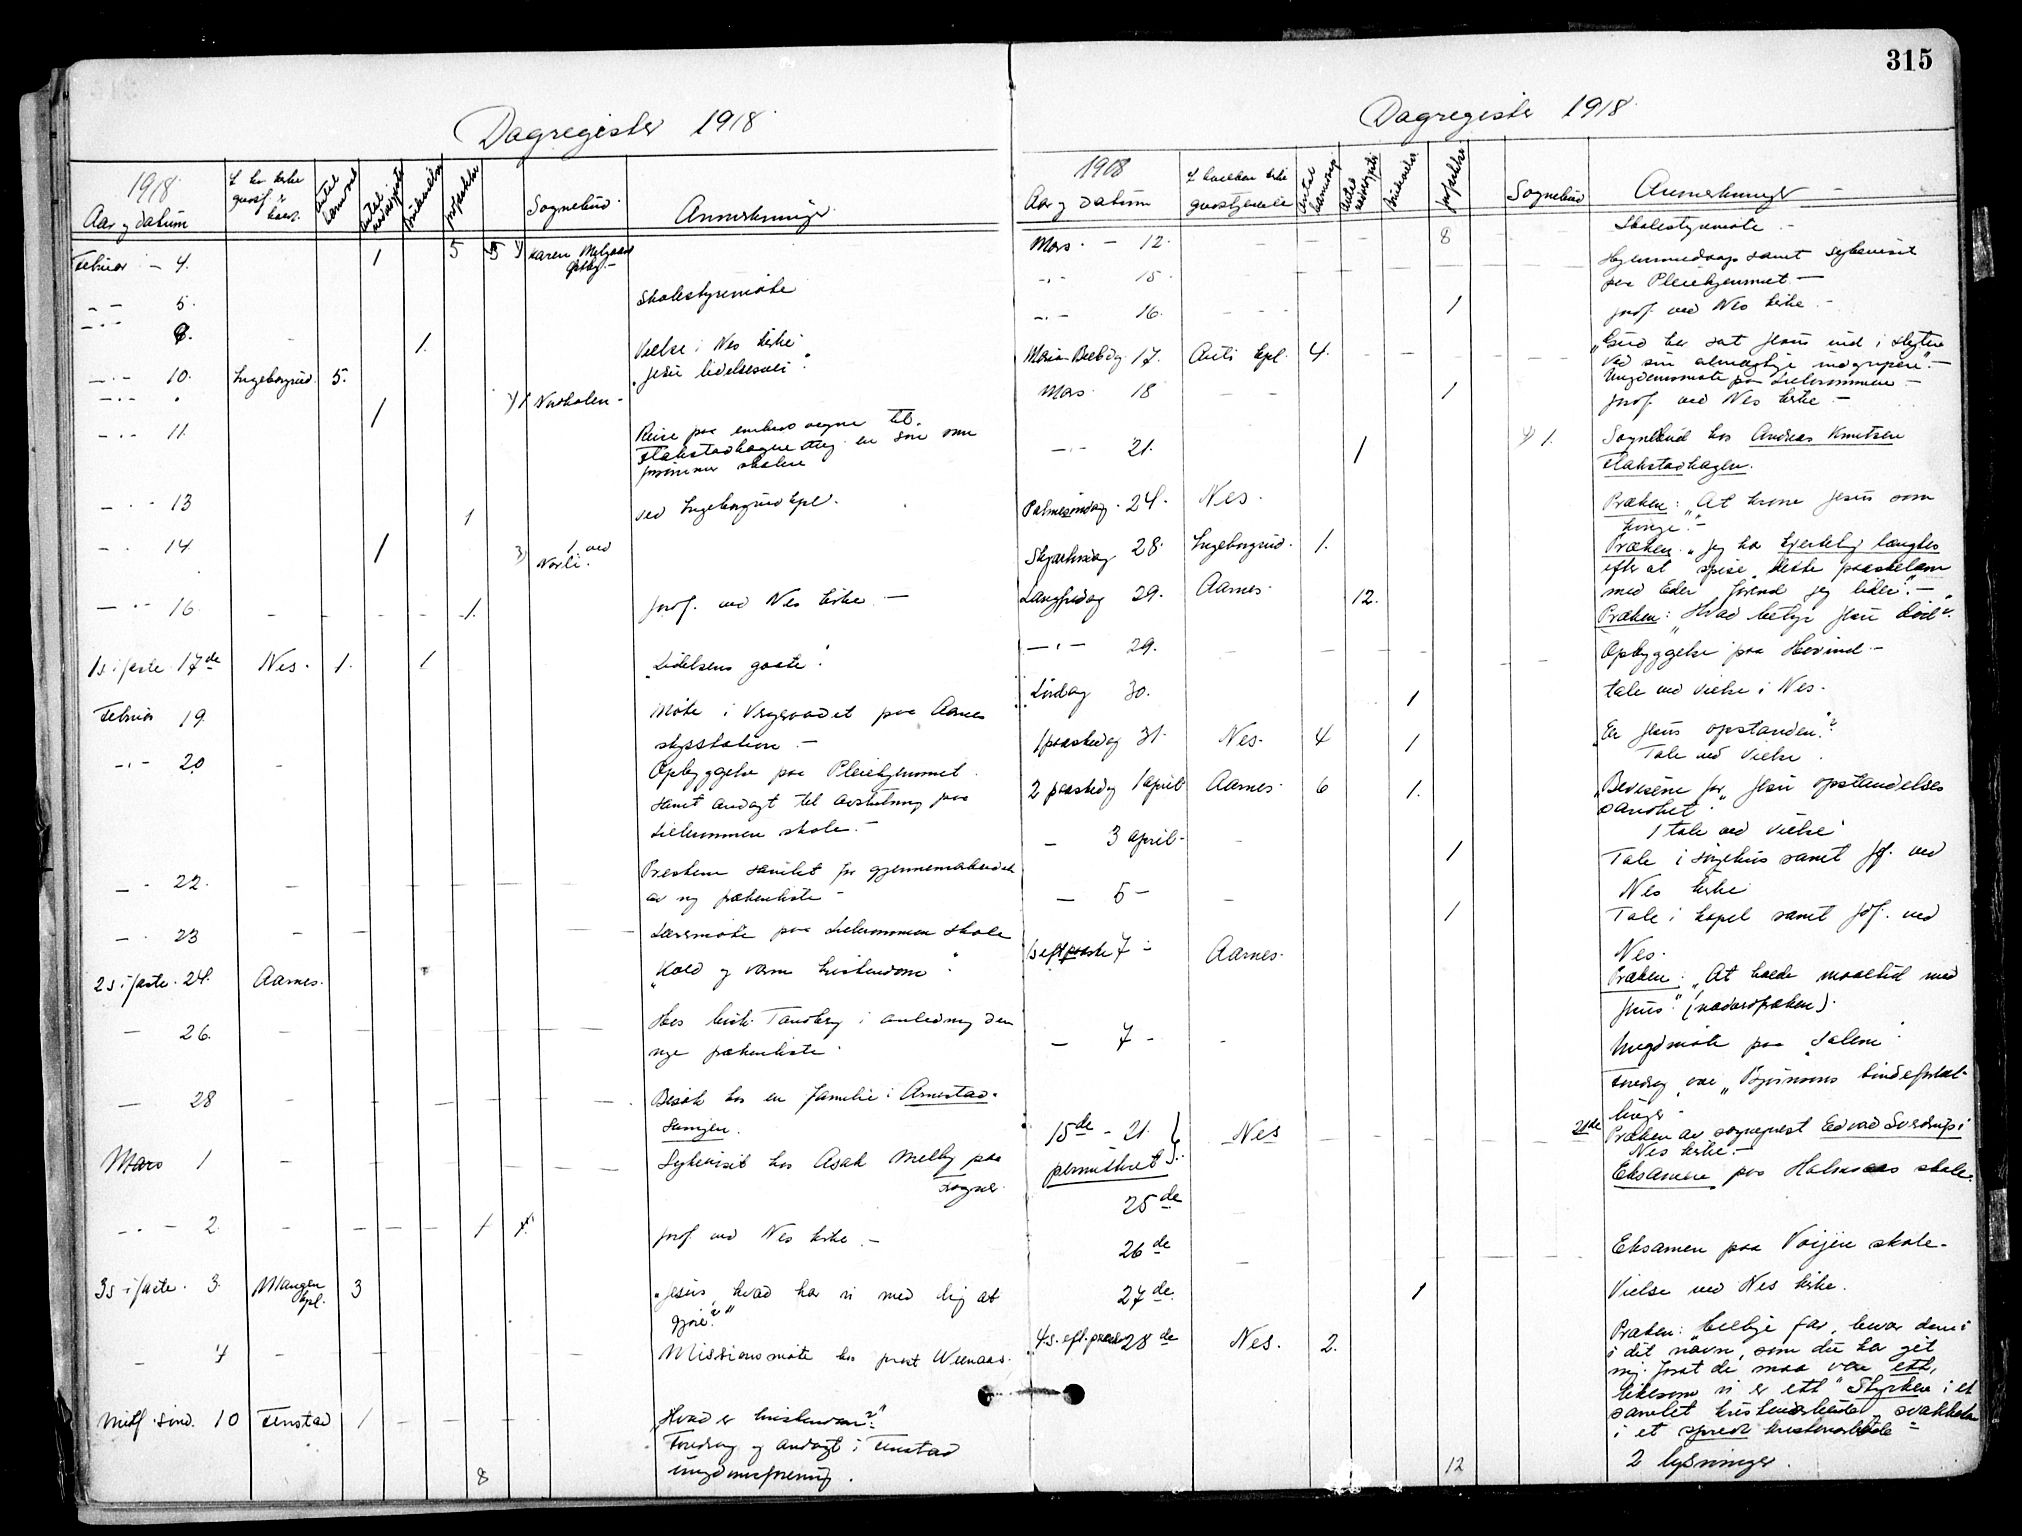 315
Dagregister 1918
1918
Aar og datum
I hv. kirke
Antal
Sognebud
Anmerkninger
Februar - 4. 1 5 5 Karen
- - 5. Skolestyremøte
- . - 6. 1. Vielse i Nes kirke
- . - 10. Ingeborgrud 5. "Jesu lidelsesvei".
1
- . - 11. Reise paa embeds vegne til
Flakstadhagen ang. en søn som
skolen
- . - 13 1 ved Ingeborgrud kpl.
- . 14. 1 1 ved
Norli.
- . - 16. 1. prof. ved Nes kirke -
1s. i faste 17de Nes. 1. 1 "Lidelsens gaate".
Februar 19. Møte i Vergeraadet paa Aarnes
skysstation -
- . - 20 Opbyggelse paa Pleiehjemmet
samt andagt til avslutning paa
skole. -
- . 22. Prestene samlet for
av ny prækenliste -
- . 23 Læremøte paa skole
2 s. i faste. 24. Aarnes. "Kold og varm kristendom".
- 26. Hos bisk. Tandberg i anledning den
nye prækenliste.
- 28 Besøk hos en familie i
Mars 1 Sykevisit hos Asak Melby paa
- . - 2 1 prof. ved Nes kirke -
3s. i faste. 3. Mangen
kpl. 3 "Jesus, hvad har vi med dig at
gjøre?"
- 4 Missionsmøte hos prost
Midf. sønd. 10 Fenstad 1 "Hvad er kristendom?"
Foredrag og andagt i Fenstad
ungdomsforening.
8
Dagregister 1918
1918
Aar og datum
I hvilken kirke
gudstjeneste
Antal
Antal
Sognebud
Anmerkninger
Mars - 12. 8 Skolestyremøte -
- . - 15. samt sykevisit
paa Pleiehjemmet -
- . - 16. 1 prof. ved Nes kirke -
Maria Budsk.dag 17. Auli kpl. 4. "Gud har sat Jesus ind i slegten
ved sin almægtige indgripen". -
Ungdomsmøte paa
Mars 18 1 prof. ved Nes kirke -
- . - 21. 1 1. Sognebud hos Andreas Knutsen
Flakstadhagen.
Palmesøndag 24. Nes. Præken: "At krone Jesus som
konge". -
Skjærtorsdag 28. Ingeborgrud. 1. Præken: "Jeg har hjertelig længtes
efter at spise dette paaskelam
med Eder førend jeg lider". -
Langfredag 29. Aarnes 12. Præken: "Hvad betyr Jesu død"?
- . - 29. Opbyggelse paa Hovind -
Lørdag 30. 1 tale ved vielse i Nes.
1 paaskedag 31. Nes. 4 1 "Er Jesus opstanden?"
Tale ved vielse.
2 paaskedag 1 april Aarnes. 6 1. "Beviserne for Jesu opstandelses
sandhet".
1 tale ved vielse
- 3 april - 1 Tale i sørgehus samt jf. ved
Nes kirke
- 5 - 1 Tale i kapel samt jdf. ved
Nes.
1s eft. paaske 7 - Aarnes. Præken: "At holde maaltid med
Jesus". (nadverdpræken).
- 7 - Ungd.møte paa "Salem"
Foredrag over "Bjørnsons bondefortæl-
linger".
15de - 21.
permitteret Nes 21de Præken av sogneprest Edvard Sverdrup i
Nes kirke. -
25de Eksamen paa skole.
26de Eksamen paa skole -
27de 1 Vielse ved Nes kirke.
4s. eft. paaske 28de Nes. 2. Præken: "Hellige far, bevar dem i
i dit navn, som du har git
mig forat de maa være ett,
likesom vi er ett" Styrken i et
samlet kristenarbeide, svakheten
i et spredt kristenarbeide -
12 2 lysninger.